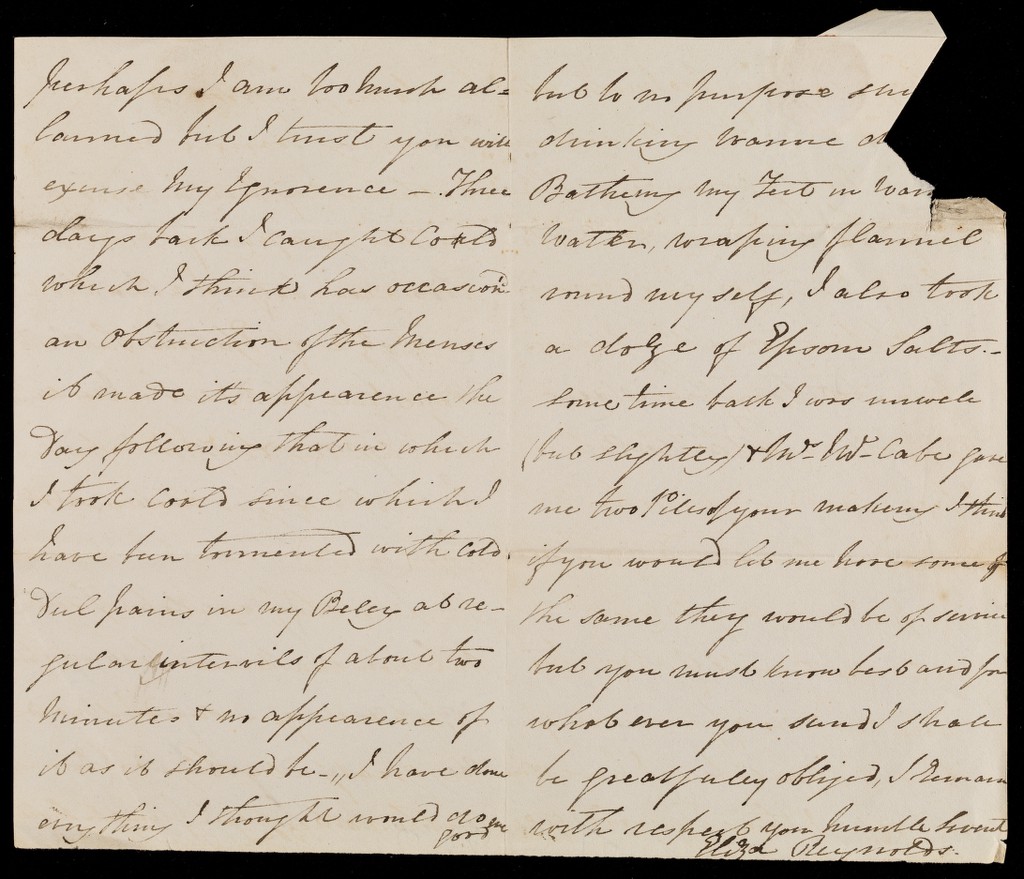 Perhaps I am too much al=
larmed but I trust you will
excuse my Ignorence – Three
days back I caught Cold
which I think has occasion'd
an obstruction of the Menses
it made its appearence the
Day following that in which
I took Coold since which I
have been tormented with Cold
Dul pains in my Beley at re-
gular intervils of about two
minutes & no appearence of
it as it should be –,, I have done
every thing I thought would do me
good
but to no purpose su
drinking warme d
Bathing my Feet in War
Water, wraping flannil
round myself, I also took
a dolze of Epsom Salts.–
some time back I was unwele
(but slightly) & Mrs. Mc. Cabe gave
me two Piles of your makeing I think
if you would let me have some of
the same they would be of servise
but you must know best and for
what ever you send I shale
be greatfuley obliged, I Remain
with respect your humble Servent
Eliza Reynolds.